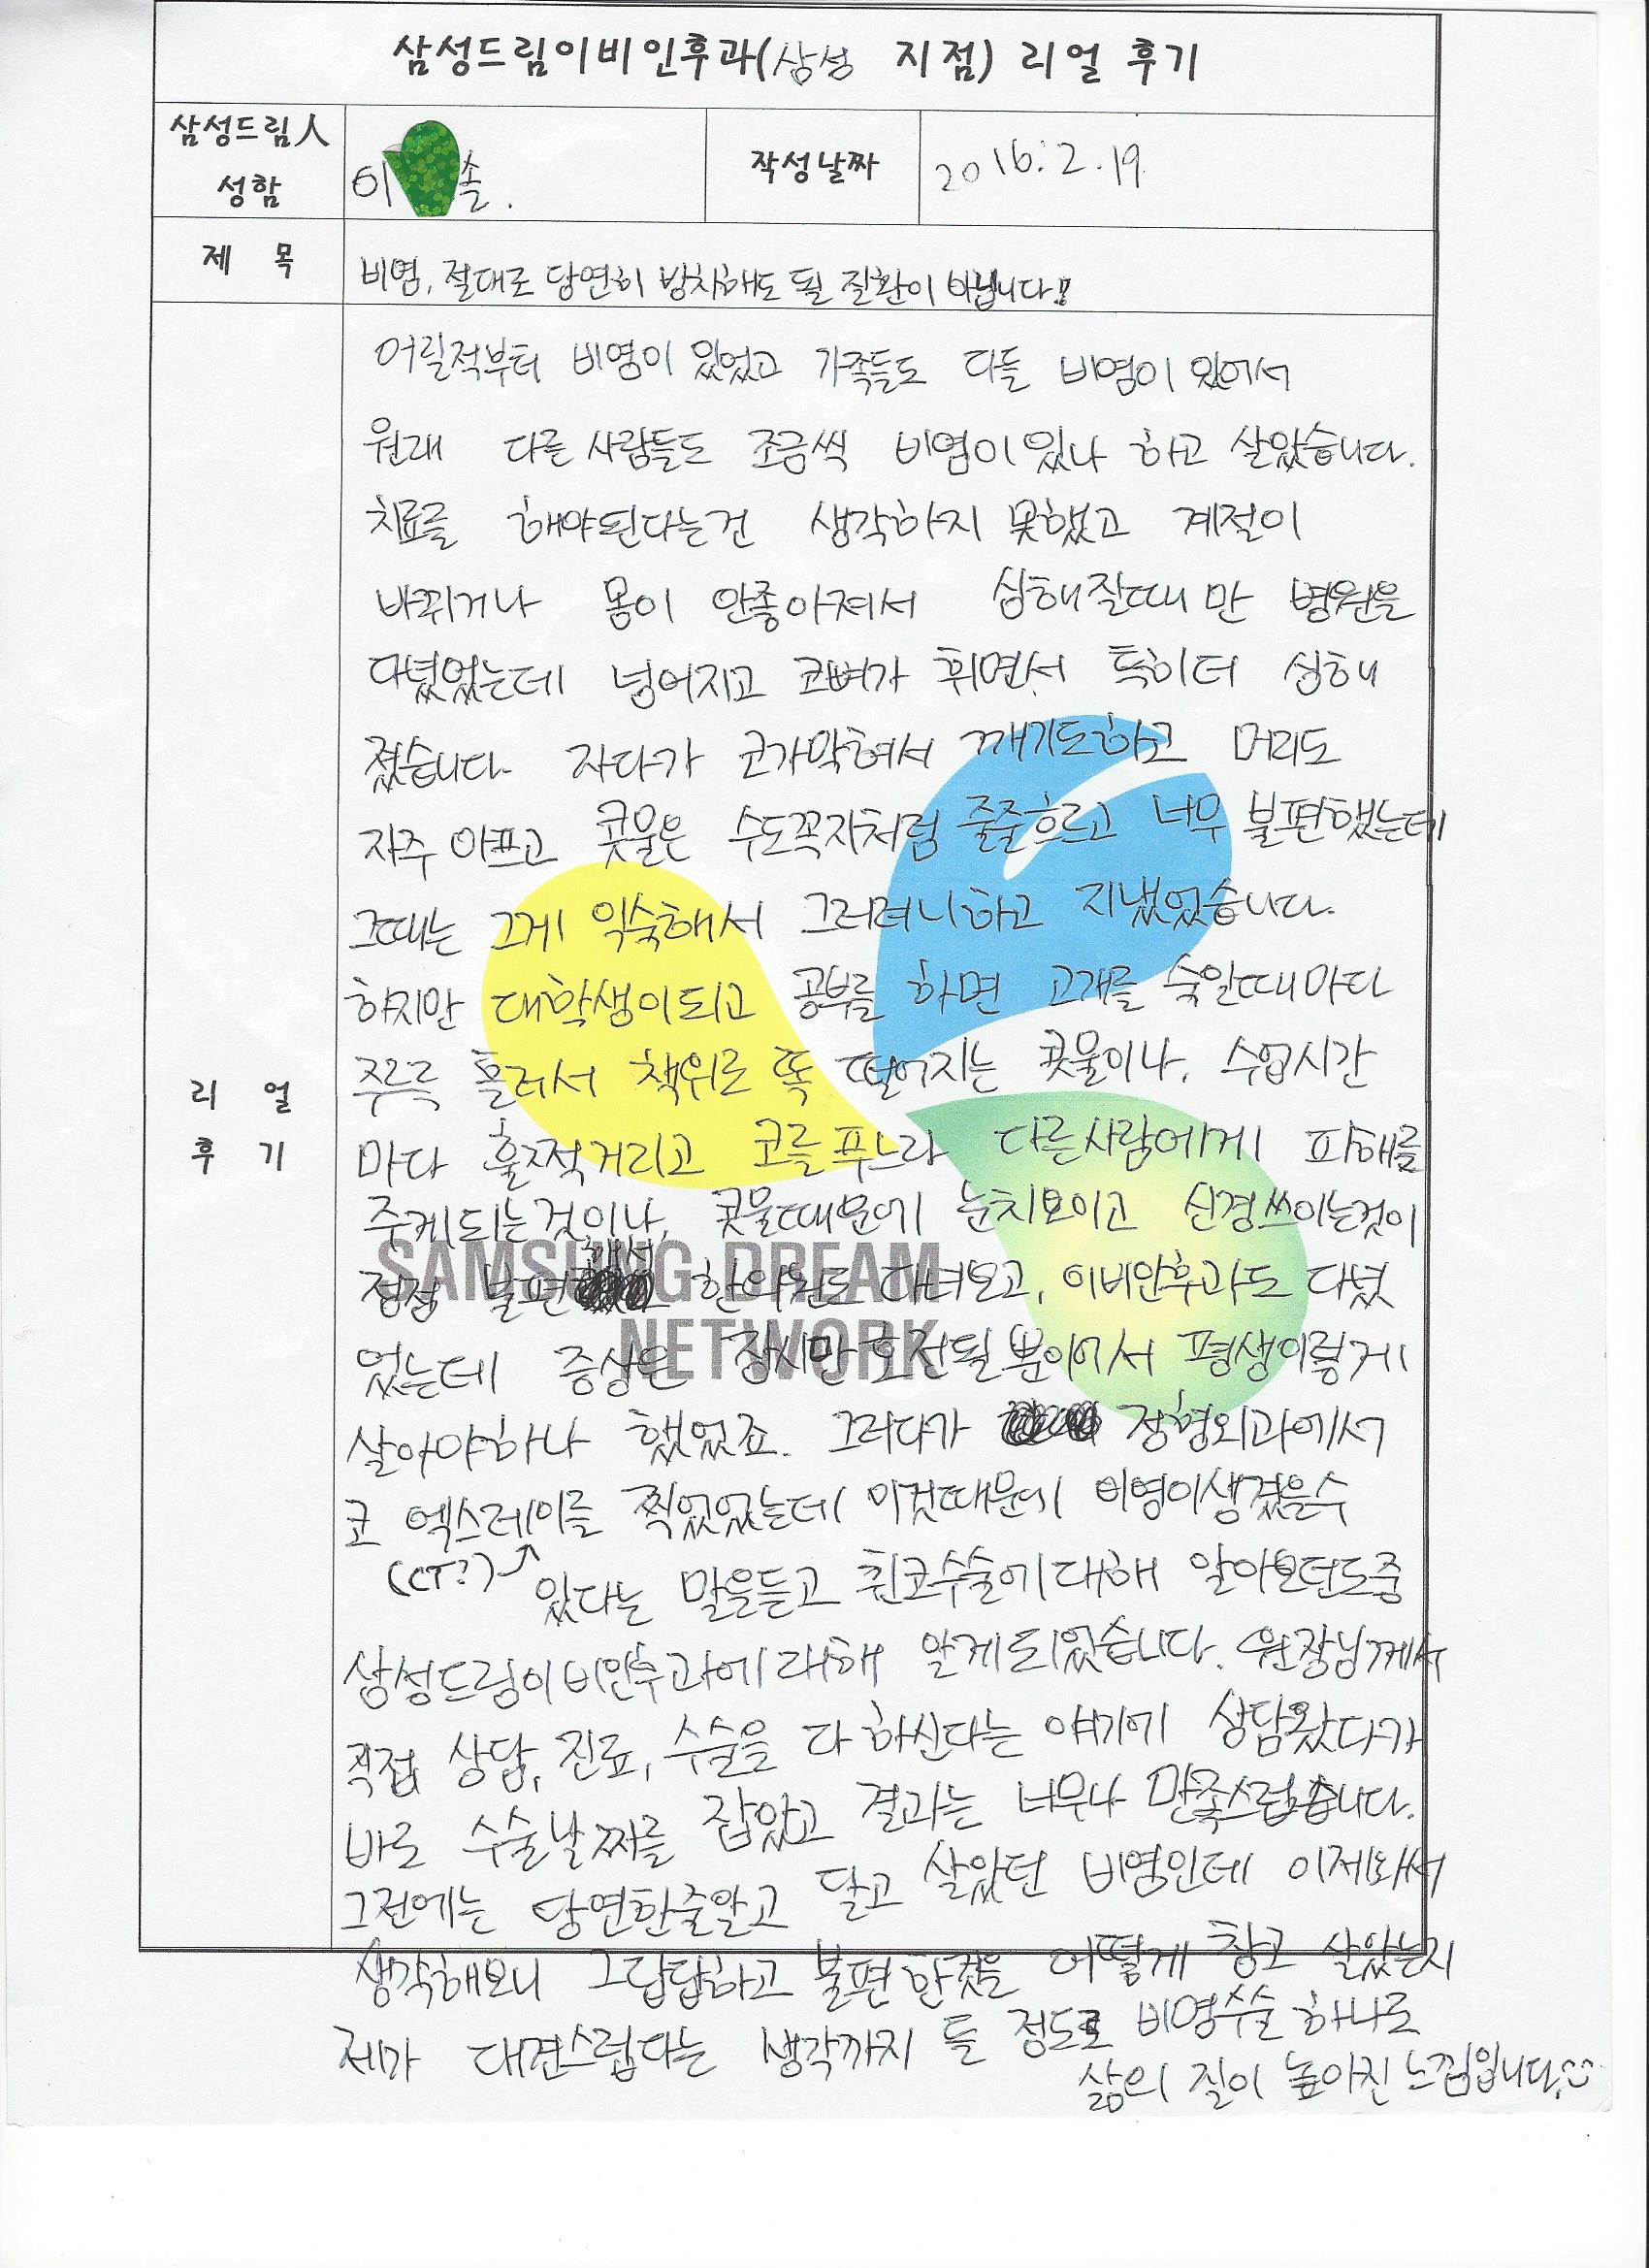 삼성드림이비인후과(삼성 지점) 리얼 후기
삼성드림人
성함
이 솔.
작성날짜
2016.2.19
제 목
비염, 절대로 당연히 방치해도 될 질환이 아닙니다!
어릴적부터 비염이 있었고 가족들도 다들 비염이 있어서
원래 다른 사람들도 조금씩 비염이 있나 하고 살았습니다.
치료를 해야된다는건 생각하지 못했고 계절이
바뀌거나 몸이 안좋아져서 심해질때만 병원을
다녔었는데 넘어지고 코뼈가 휘면서 특히더 심해
졌습니다. 자다가 코가막혀서 깨기도하고 머리도
자주 아프고 콧물은 수도꼭지처럼 줄줄흐르고 너무 불편했는데
그때는 그게 익숙해서 그러려니하고 지냈었습니다.
하지만 대학생이되고 공부를 하면 고개를 숙일때마다
주르륵 흘러서 책위로 똑 떨어지는 콧물이나, 수업시간
리 얼
후 기
마다 훌쩍거리고 코를푸느라 다른사람에게 피해를
주게되는것이나, 콧물때문에 눈치보이고 신경쓰이는것이
점점 불편해서 한의원도 다녀보고, 이비인후과도 다녔
었는데 증상은 잠시만 호전될뿐이어서 평생이렇게
살아야하나 했었죠. 그러다가 정형외과에서
코 엑스레이를 찍었었는데 이것때문에 비염이생겼을수
(CT?)↗ 있다는 말을듣고 휜코수술에대해 알아보던도중
삼성드림이비인후과에대해 알게되었습니다. 원장님께서
직접 상담, 진료, 수술을 다 하신다는 얘기에 상담왔다가
바로 수술날짜를 잡았고 결과는 너무나 만족스럽습니다.
그전에는 당연한줄알고 달고 살았던 비염인데 이제와서
생각해보니 그답답하고 불편한것을 어떻게 참고 살았는지
제가 대견스럽다는 생각까지 들 정도로 비염수술 하나로
삶의 질이 높아진 느낌입니다.
SAMSUNG DREAM
NETWORK